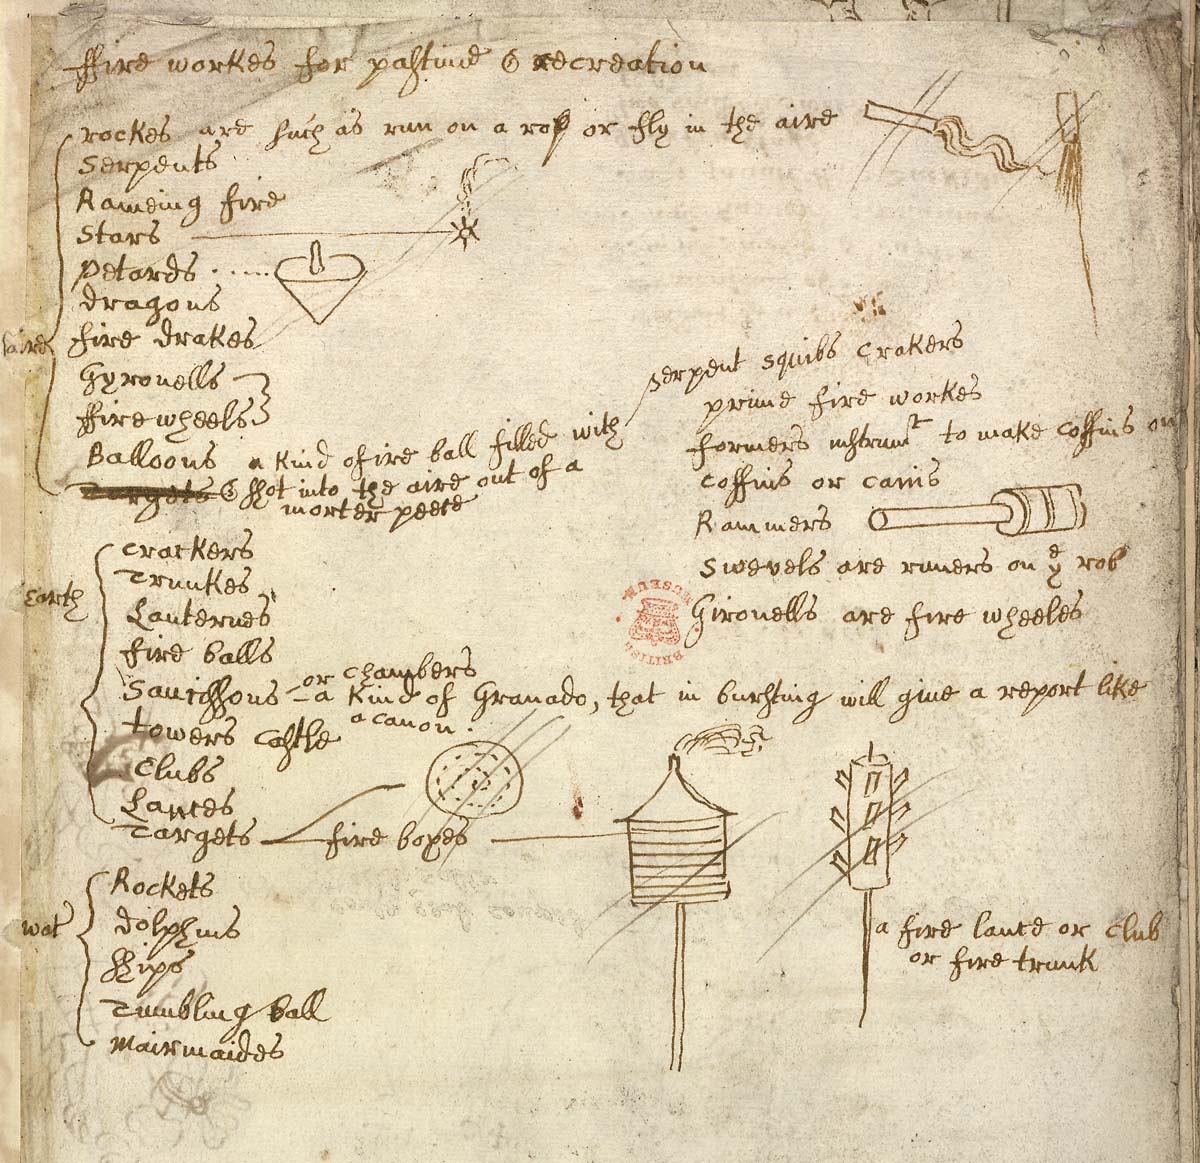 ffire workes for pastime & recreation
rockes are such as run on a rop or fly in the aire
Serpents
Raineing fire
Stars
Petards
dragons
fire drakes
aire
Gyronells
ffire wheels
Balloons a kind of fire ball filled with
serpent squibs Crakers
Targets & shot into the aire out of a
morter peece
prime fire workes
formers instrumt to make coffins on
coffins or cans
Rammers
Swevels are runers on ye rop
Gironells are fire wheeles
BRITISH MUSEUM
Earth
Crackers
Trunkes
Lanternes
fire balls
Saucissons or Chambers
a kind of Granado, that in bursting will give a report like
a canon.
towers castle
Clubs
Lances
Targets
fire boxes
wat
Rockets
dolphins
ships
Tumbling ball
Mairmaides
a fire lance or Club
or fire trunk